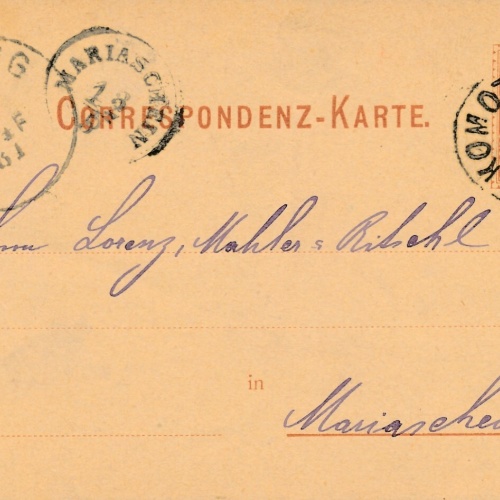 MARIASCHEIN
CORRESPONDENZ-KARTE.
KOMO
Lorenz, Mahler & Ritschl
in
Mariaschei